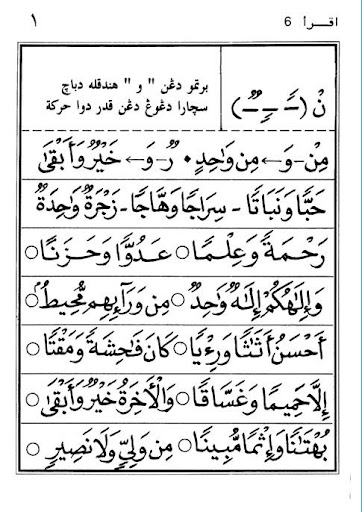 اقرأ 6 ١
نْ (ــًــ ــٍــ ــٌــ) برتمو دڠن " و " هندقله دباچ
سچارا دڠوڠ دڠن قدر دوا حركة
مِنْ - وَ ← مِن وَاحِدٍ • رٌ - وَ ← خَيْرٌ وَأَبْقَىٰ
حَبًّا وَنَبَاتًا - سِرَاجًا وَهَّاجًا - زَجْرَةٌ وَاحِدَةٌ
رَحْمَةً وَعِلْمًا ○ عَدُوًّا وَحَزَنًا ○
وَإِلَٰهُكُمْ إِلَٰهٌ وَاحِدٌ ○ مِن وَرَآئِهِم مُّحِيطٌ ○
أَحْسَنُ أَثَاثًا وَرِءْيًا ○ كَانَ فَاحِشَةً وَمَقْتًا ○
إِلَّا حَمِيمًا وَغَسَّاقًا ○ وَالْأَخِرَةُ خَيْرٌ وَأَبْقَىٰ ○
بُهْتَانًا وَإِثْمًا مُّبِينًا ○ مِن وَلِيٍّ وَلَا نَصِيرٍ ○